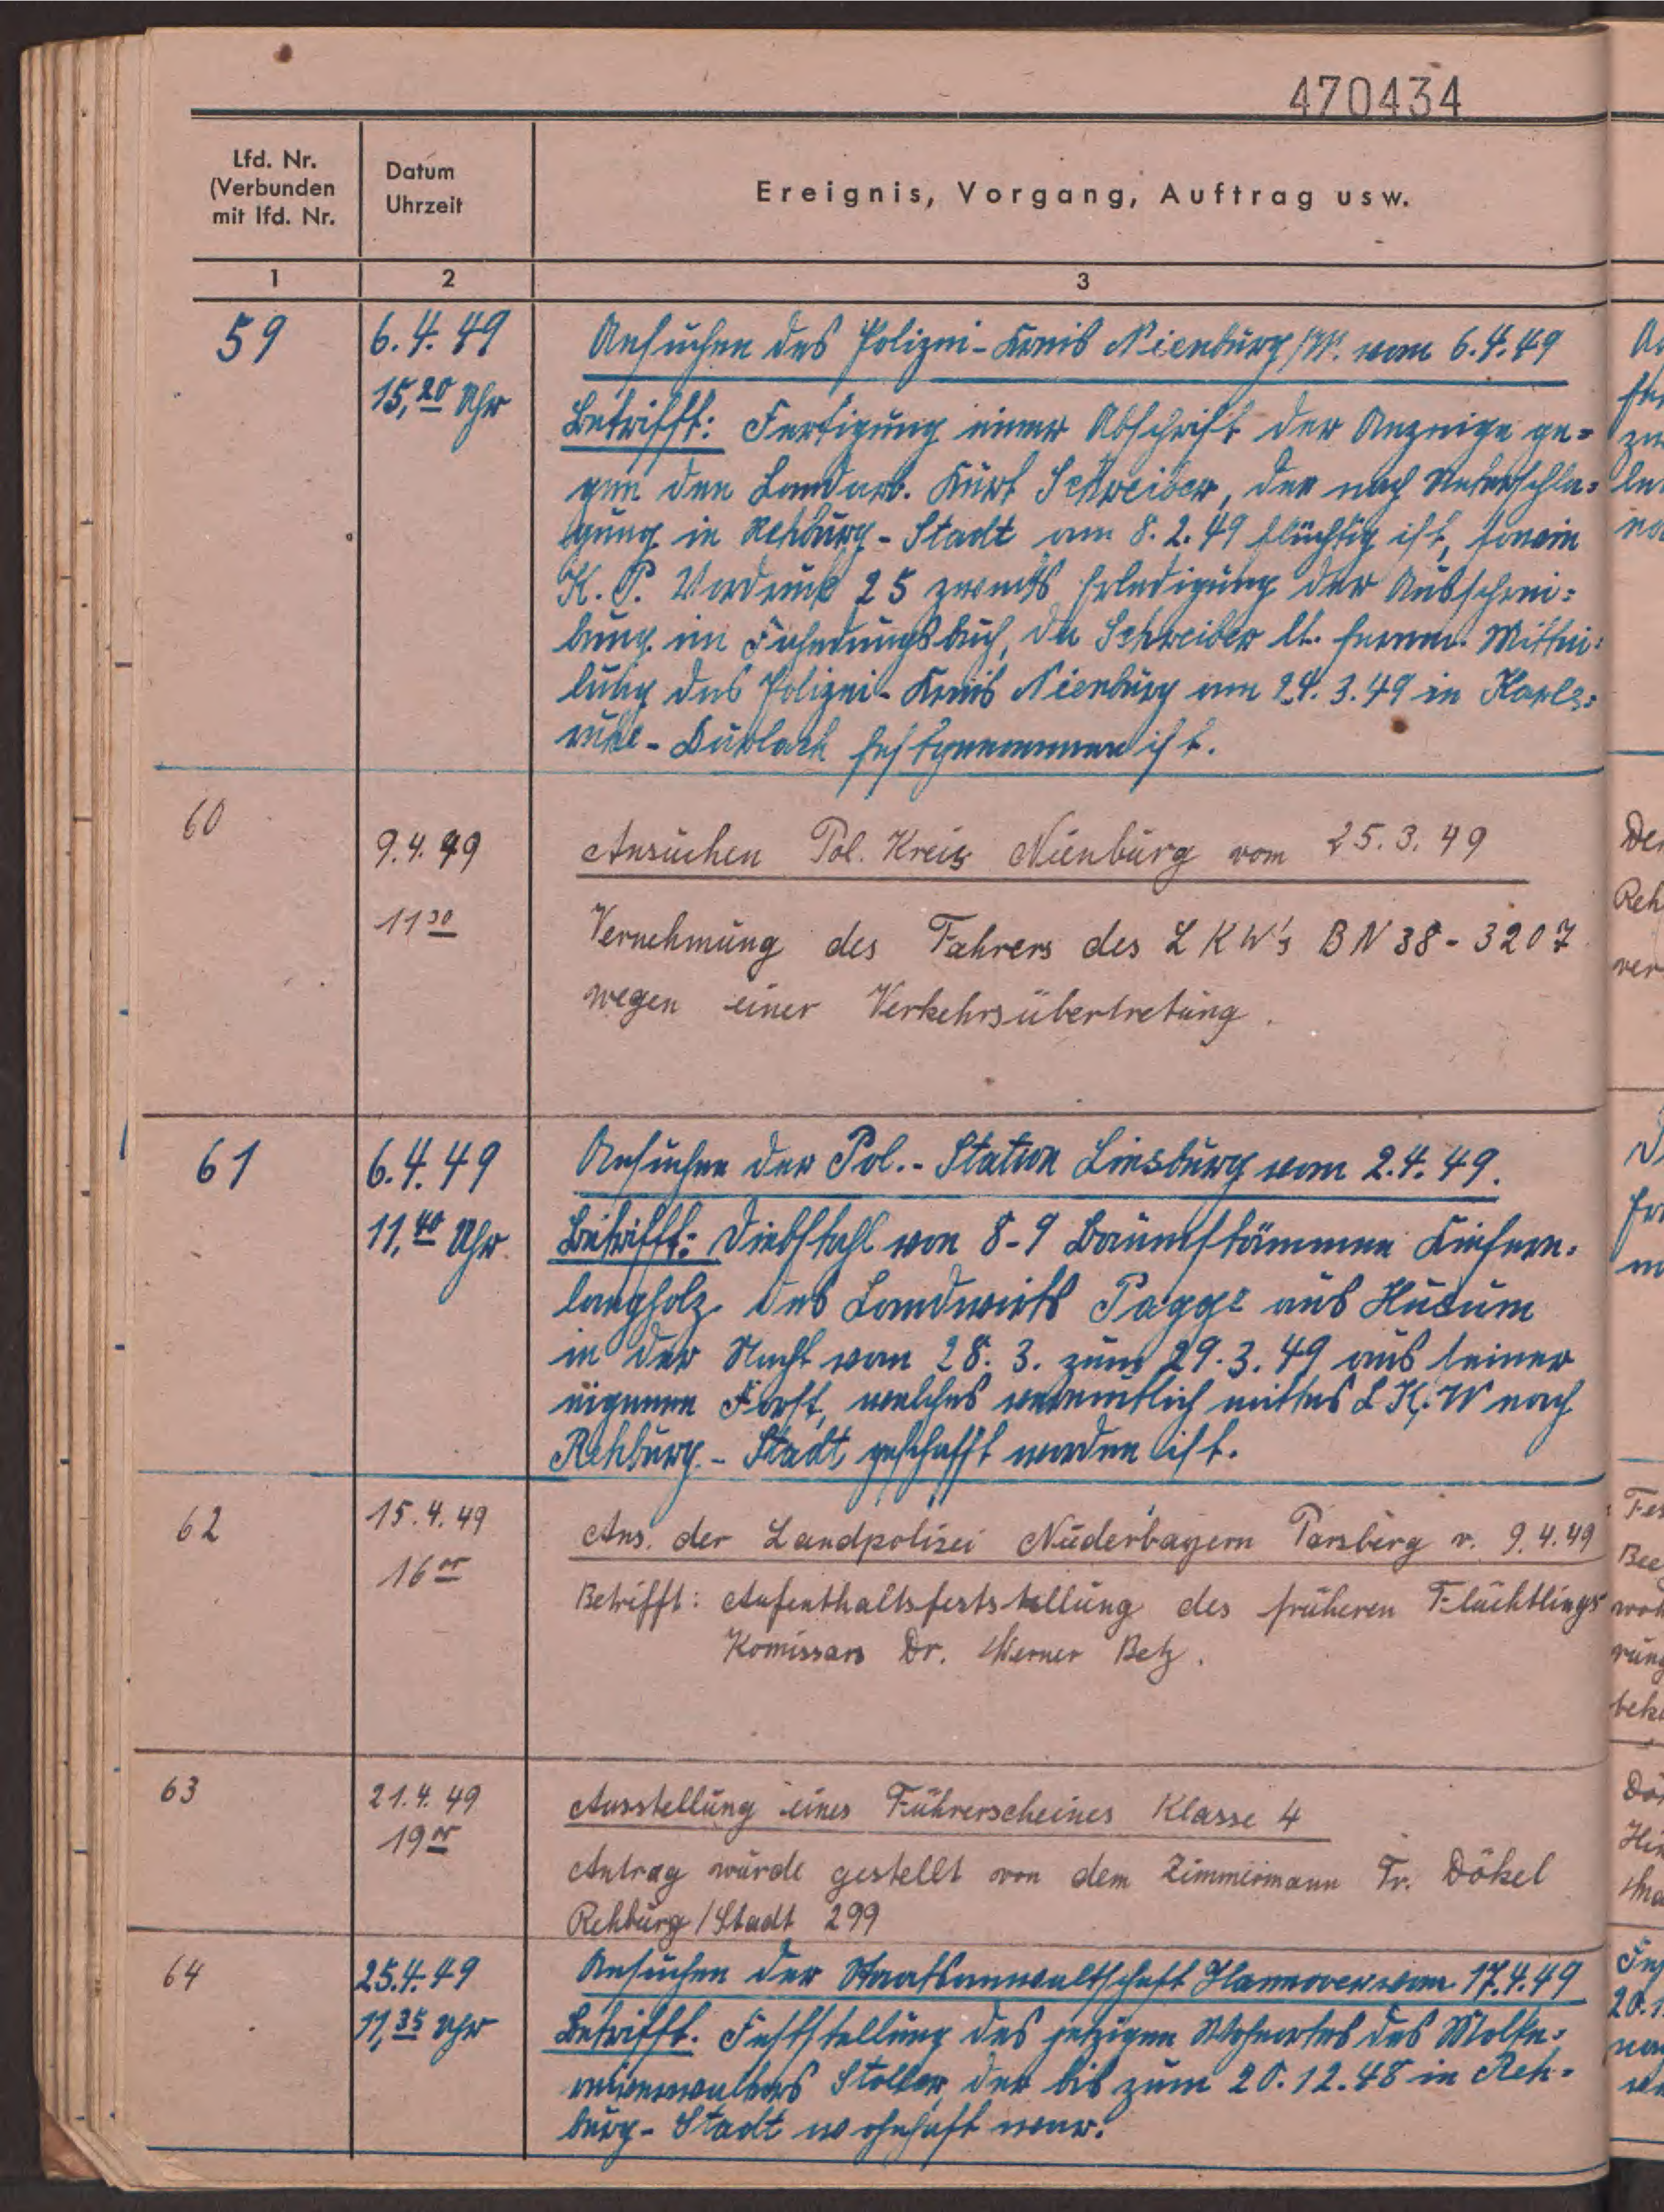 470434
Lfd. Nr.
(Verbunden
mit lfd. Nr.
Datum
Uhrzeit
Ereignis, Vorgang, Auftrag usw.
1 2 3
59 6.4.49 Ansuchen des Polizei-Kreis Nienburg/W. vom 6.4.49
15,20 Uhr Betrifft: Fertigung einer Abschrift der Anzeige ge=
gen den Landarb. Kurt Schreiber, der nach Unterschla=
gung in Rehburg-Stadt am 8.2.49 flüchtig ist, sowie
K.P. Vordruck 25 zwecks Erledigung der Ausschrei=
bung im Fahndungsbuch, da Schreiber lt. fernm. Mittei=
lung des Polizei-Kreis Nienburg am 24.3.49 in Karls=
ruhe-Durlach festgenommen ist.
60 9.4.49 Ansuchen Pol. Kreis Nienburg vom 25.3.49
11 30 Vernehmung des Fahrers des LKW's BN 38-3207
wegen einer Verkehrsübertretung.
61 6.4.49 Ansuchen der Pol.-Station Linsburg vom 2.4.49.
11,40 Uhr Betrifft: Diebstahl von 8-9 Baumstämmen Kiefern=
langholz des Landwirts Pagge aus Husum
in der Nacht vom 28.3. zum 29.3.49 aus seiner
eigenen Forst, welches vermutlich mittels L.K.W nach
Rehburg-Stadt geschafft worden ist.
62 15.4.49 Ans. der Landpolizei Niederbayern Parsberg v. 9.4.49
16 00 Betrifft: Aufenthaltsfeststellung des früheren Flüchtlings
Komissars Dr. Werner Betz.
63 21.4.49 Ausstellung eines Führerscheines Klasse 4
19 00 Antrag wurde gestellt von dem Zimmermann Fr. Dökel
Rehburg/Stadt 299
64 25.4.49 Ansuchen der Staatsanwaltschaft Hannover vom 17.4.49
11,35 Uhr Betrifft. Feststellung des jetzigen Wohnortes des Molke=
reiverwalters Stoller, der bis zum 20.12.48 in Reh=
burg-Stadt wohnhaft war.